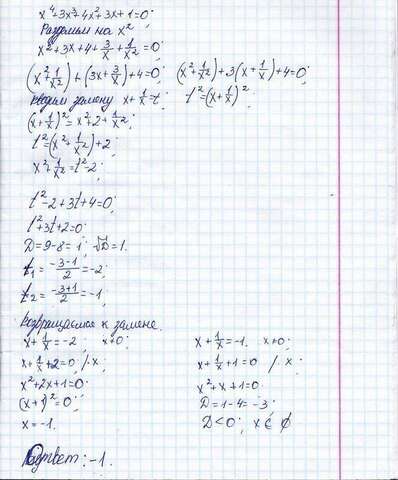 x⁴+3x³+4x²+3x+1=0;
Разделим на x²
x²+3x+4+3/x+1/x²=0;
(x²+1/x²)+(3x+3/x)+4=0; (x²+1/x²)+3(x+1/x)+4=0;
Вводим замену x+1/x=t; t²=(x+1/x)²
(x+1/x)²=x²+2+1/x²;
t²=(x²+1/x²)+2;
x²+1/x²=t²-2;
t²-2+3t+4=0;
t²+3t+2=0;
D=9-8=1; √D=1.
t₁=(-3-1)/2=-2;
t₂=(-3+1)/2=-1;
Возвращаемся к замене.
x+1/x=-2; x≠0; x+1/x=-1. x≠0;
x+1/x+2=0 /·x; x+1/x+1=0 /·x;
x²+2x+1=0; x²+x+1=0;
(x+1)²=0; D=1-4=-3;
x=-1. D<0; x∈∅
Ответ: -1.